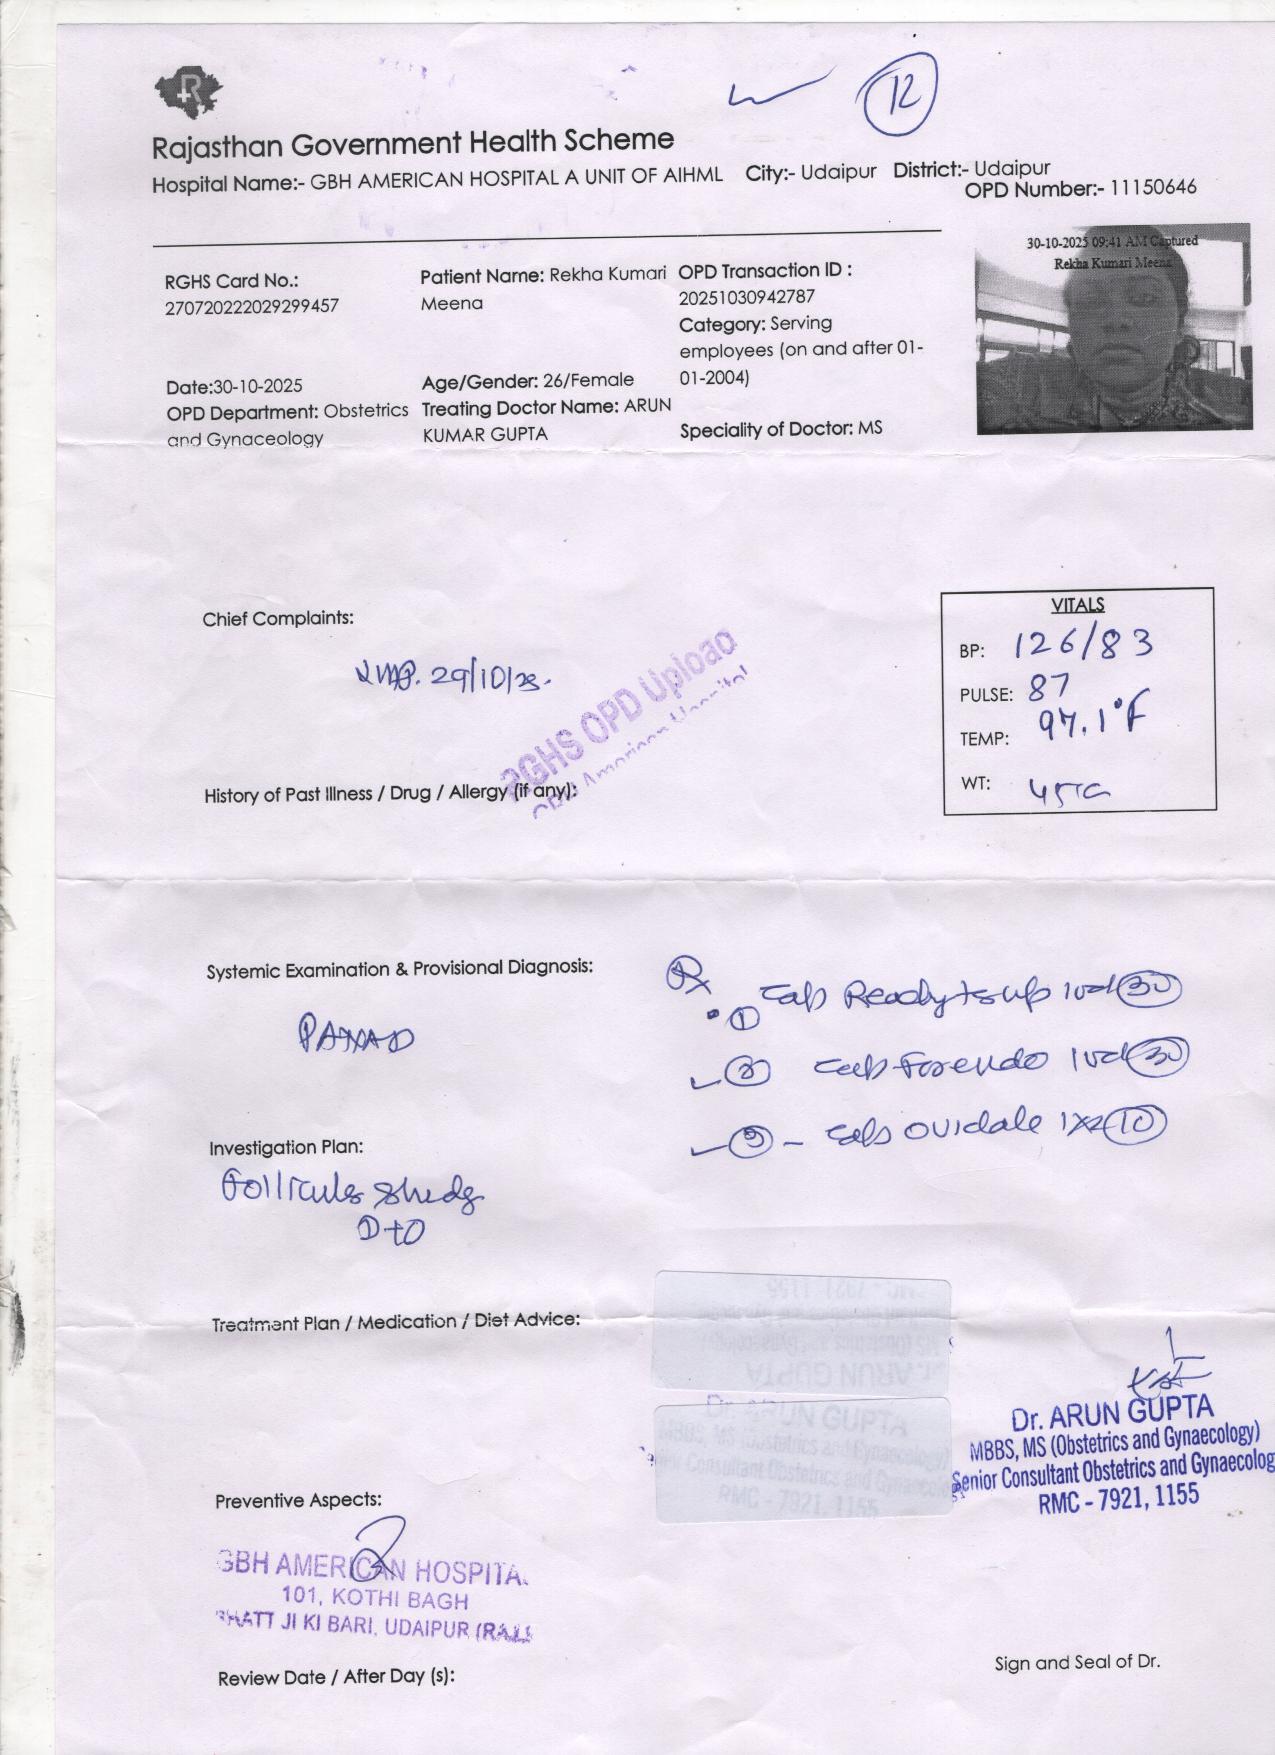 R
12
Rajasthan Government Health Scheme
Hospital Name:- GBH AMERICAN HOSPITAL A UNIT OF AIHML City:- Udaipur District:- Udaipur
OPD Number:- 11150646
30-10-2025 09:41 AM Captured
Rekha Kumari Meena
RGHS Card No.:
270720222029299457
Patient Name: Rekha Kumari
Meena
OPD Transaction ID :
20251030942787
Category: Serving
employees (on and after 01-
01-2004)
Date:30-10-2025
Age/Gender: 26/Female
OPD Department: Obstetrics
and Gynaceology
Treating Doctor Name: ARUN
KUMAR GUPTA
Speciality of Doctor: MS
Chief Complaints:
29/10/25.
VITALS
BP: 126/83
PULSE: 87
TEMP: 97.1°F
WT: 45
RGHS OPD Upload
GBH American Hospital
History of Past Illness / Drug / Allergy (if any):
Systemic Examination & Provisional Diagnosis:
Rx
① Tab 1od 30
② Tab 1od 30
③ - Tab Ovidale 1x2 10
Investigation Plan:
D10
Treatment Plan / Medication / Diet Advice:
Dr. ARUN GUPTA
MBBS, MS (Obstetrics and Gynaecology)
Senior Consultant Obstetrics and Gynaecolog
RMC - 7921, 1155
Dr. ARUN GUPTA
MBBS, MS (Obstetrics and Gynaecology)
Senior Consultant Obstetrics and Gynaecolog
RMC - 7921, 1155
Preventive Aspects:
GBH AMERICAN HOSPITA
101, KOTHI BAGH
BHATT JI KI BARI, UDAIPUR (RAJ.)
Review Date / After Day (s):
Sign and Seal of Dr.